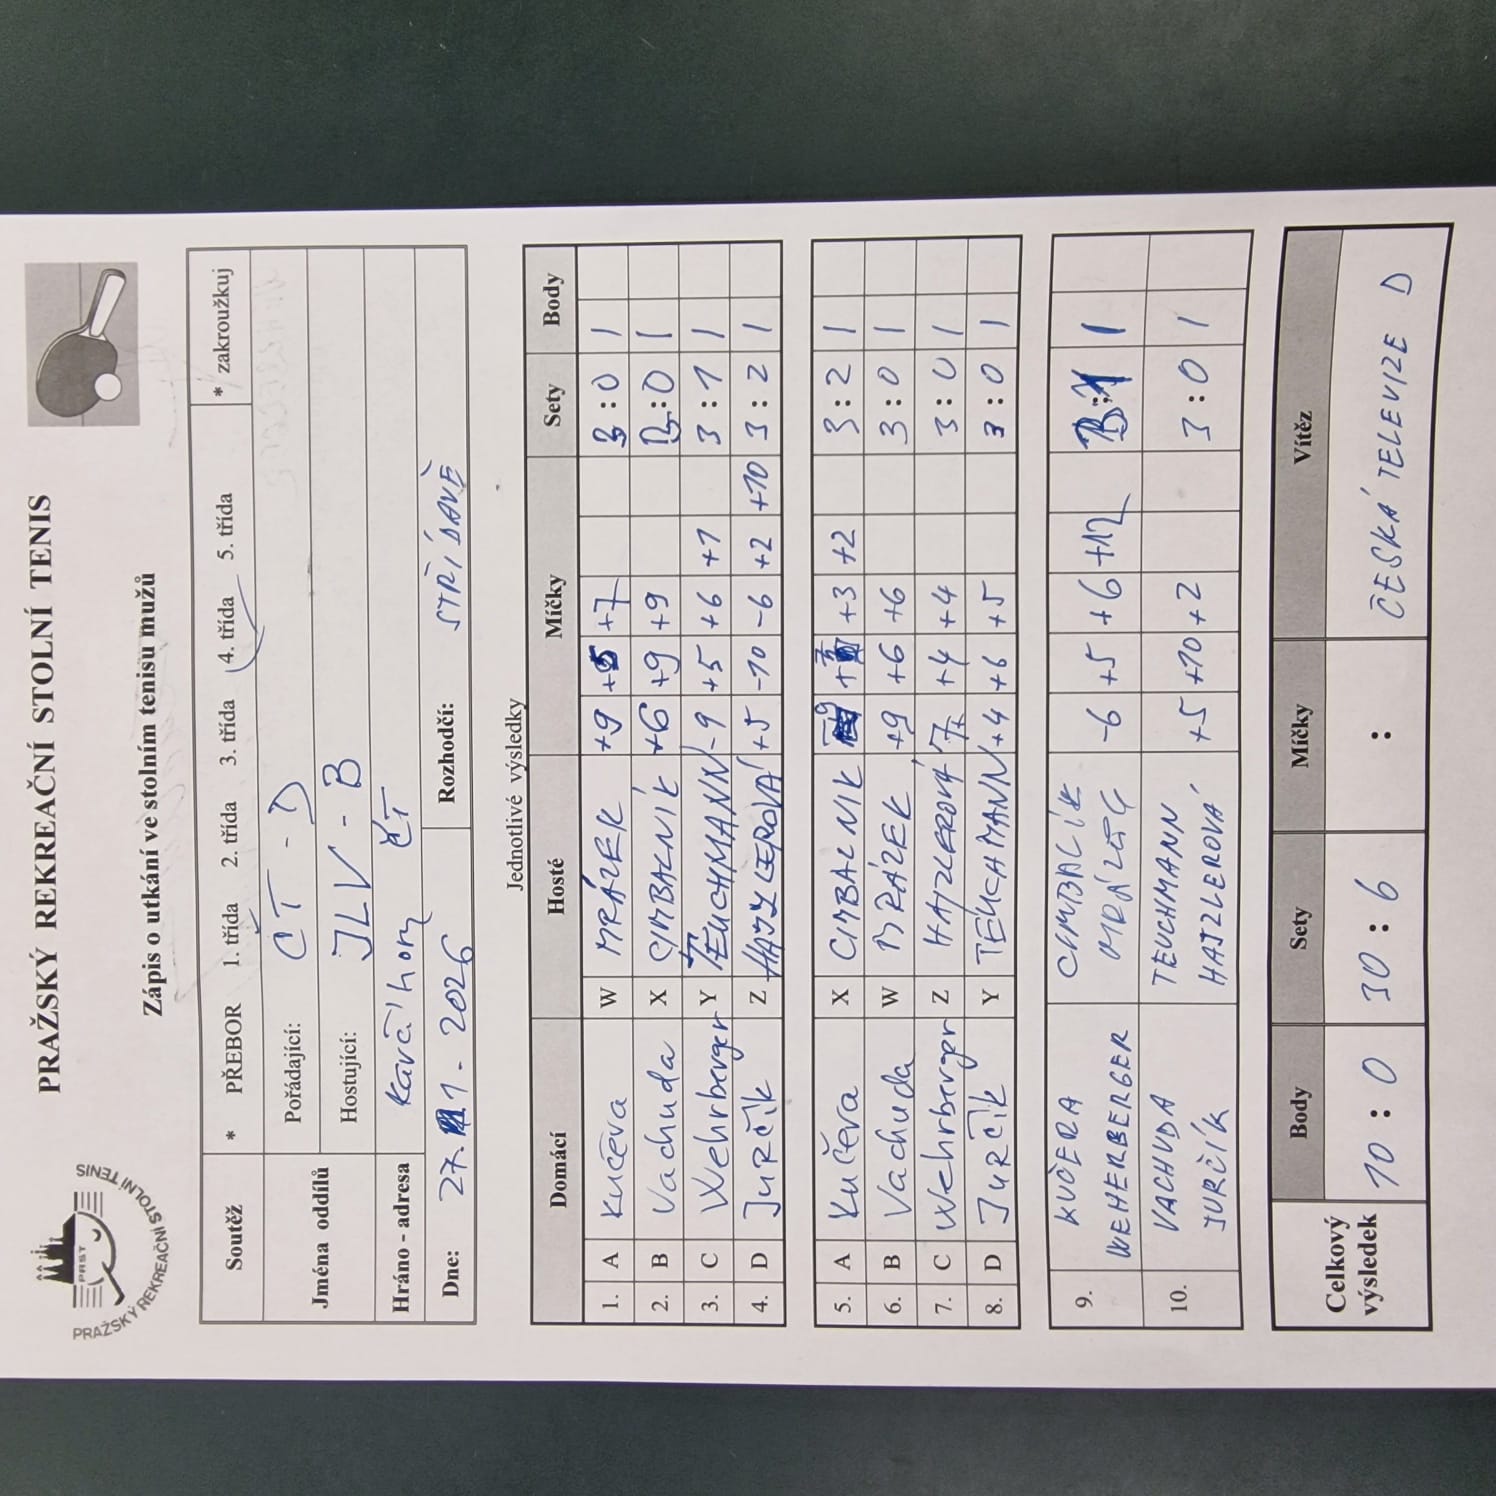 PRAŽSKÝ REKREAČNÍ STOLNÍ TENIS
PRST
PRAŽSKÝ REKREAČNÍ STOLNÍ TENIS
Zápis o utkání ve stolním tenisu mužů
Soutěž * PŘEBOR 1. třída 2. třída 3. třída 4. třída 5. třída * zakroužkuj
Jména oddílů Pořádající: ČT - D
Hostující: JLV - B
Hráno - adresa Kavčí hory ČT
Dne: 27. 1. 2026 Rozhodčí: STŘÍDAVĚ
Jednotlivé výsledky
Domácí Hosté Míčky Sety Body
1. A Kučera W MRÁZEK +9 +7 3:0 1
2. B Vachuda X CIMBALNÍK +6 +9 +9 3:0 1
3. C Wehrberger Y TEUCHMANN -9 +5 +6 +7 3:1 1
4. D JURČÍK Z HAJZLEROVÁ +5 -10 -6 +2 +10 3:2 1
5. A Kučera X CIMBALNIK +3 +2 3:2 1
6. B Vachuda W MRÁZEK +9 +6 +6 3:0 1
7. C Wehrberger Z HAJZLEROVÁ +4 +4 3:0 1
8. D JURČÍK Y TEUCHMANN +4 +6 +5 3:0 1
9. KUČERA
WEHERBERGER -6 +5 +6 +12 3:1 1
10. VACHUDA TEUCHMANN
JURČÍK HAJZLEROVÁ +5 +10 +2 3:0 1
Celkový výsledek Body Sety Míčky Vítěz
10 : 0 30 : 6 : ČESKÁ TELEVIZE D